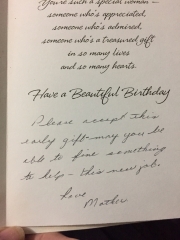 You're such a special woman —
someone who's appreciated,
someone who's admired,
someone who's a treasured gift
in so many lives
and so many hearts.
Have a Beautiful Birthday
Please accept this
early gift - may you be
able to fine something
to help - this new job.
Love
Mother